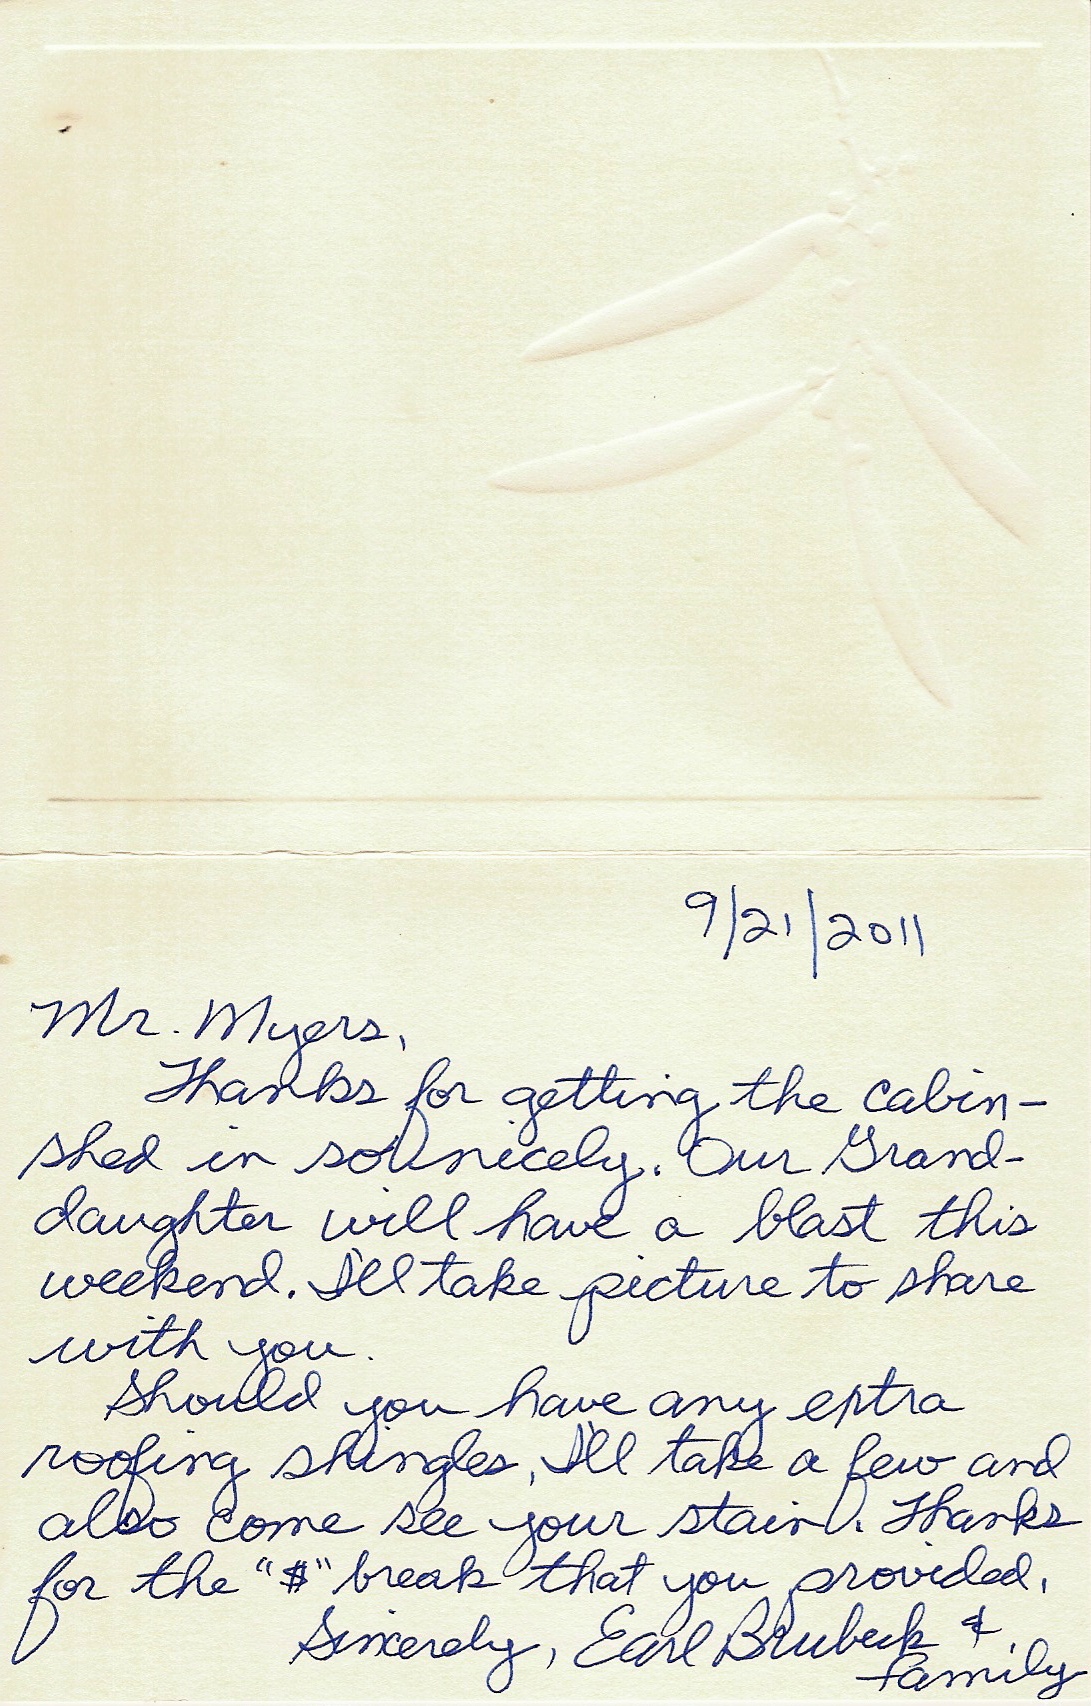 9/21/2011
Mr. Myers,
Thanks for getting the cabin-
shed in so nicely. Our Grand-
daughter will have a blast this
weekend. I'll take picture to share
with you.
Should you have any extra
roofing shingles, I'll take a few and
also come see your stain. Thanks
for the "$" break that you provided.
Sincerely, Earl Brubeck &
family